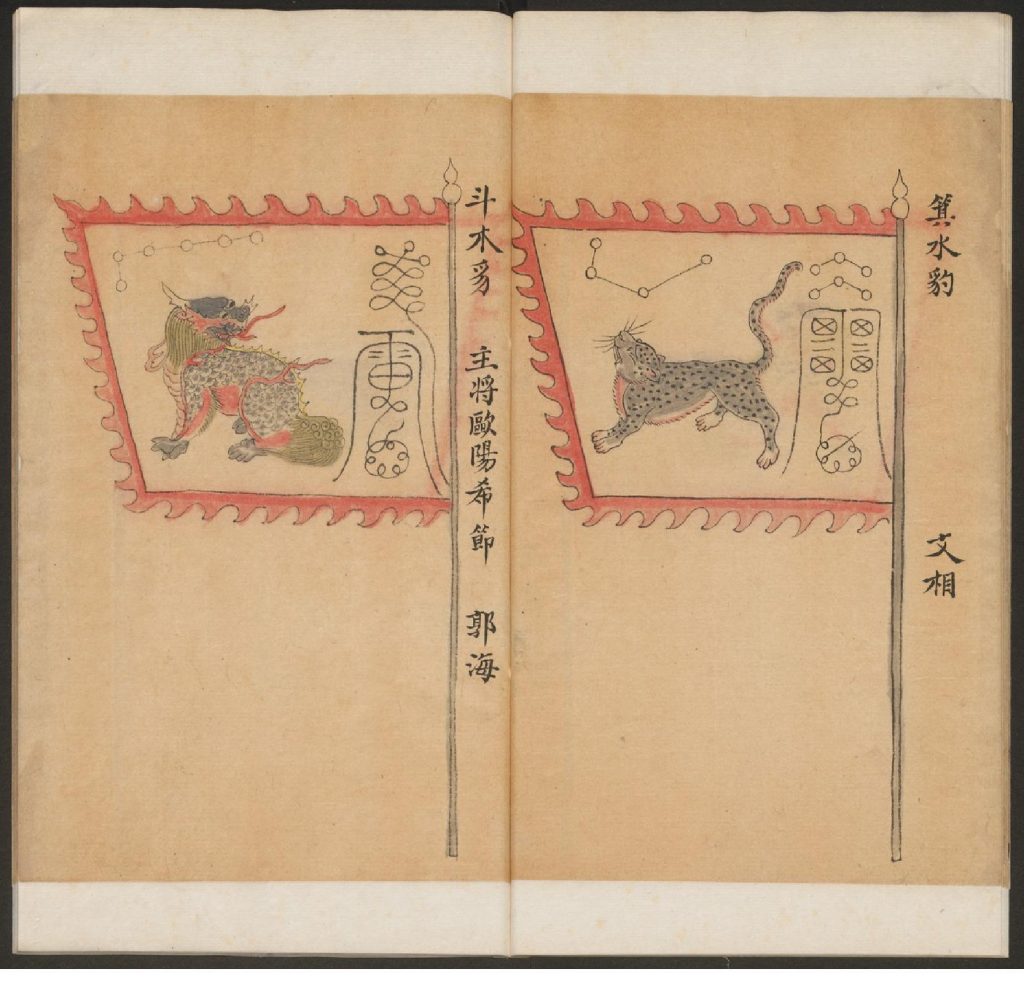 箕水豹 文相
斗木豸 主將歐陽希節 郭海